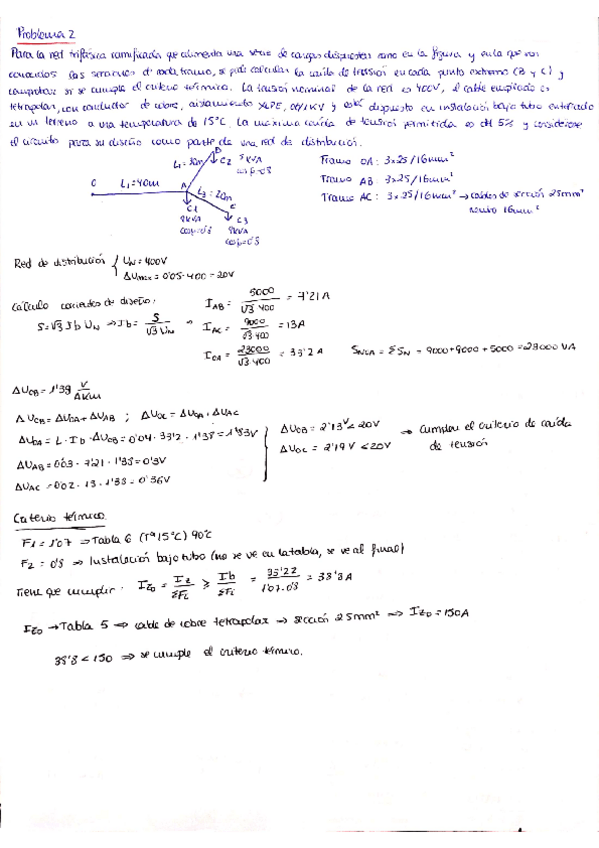 Problema 2
Para la red trifásica ramificada que alimenta una serie de cargas dispuestas como en la figura y en la que son
conocidas las secciones de cada tramo, se pide calcular la caída de tensión en cada punto extremo (B y C) y
comprobar si se cumple el criterio térmico. La tensión nominal de la red es 400V, el cable empleado es
tetrapolar, con conductor de cobre, aislamiento XLPE, 0,6/1KV y está dispuesto en instalación bajo tubo enterrado
en un terreno a una temperatura de 15°C. La máxima caída de tensión permitida es del 5% y considérese
el circuito para su diseño como parte de una red de distribución.
B
L2 = 30m
C2
5 kVA
cosφ=0'8
O
L1 = 40m
A
L3 = 20m
C
C1
9KVA
cosφ=0'8
C3
9KVA
cosφ=0'8
Tramo OA: 3x25/16mm²
Tramo AB: 3x25/16mm²
Tramo AC: 3x25/16mm² → cables de sección 25mm²
neutro 16mm²
Red de distribución { UN = 400V
ΔUmax = 0'05·400 = 20V
Cálculo corrientes de diseño:
S = √3 Ib UN ⇒ Ib = S / √3 UN
IAB = 5000 / √3 400 = 7'21 A
IAC = 9000 / √3 400 = 13A
IOA = 23000 / √3 400 = 33'2 A
SNOA = ΣSN = 9000+9000+5000 = 23000 VA
ΔUCB = 1'38 V/AKm
ΔUOB = ΔUOA + ΔUAB ; ΔUOC = ΔUOA + ΔUAC
ΔUOA = L · Ib · ΔUCB = 0'04 · 33'2 · 1'38 = 1'83V
ΔUAB = 0'03 · 7'21 · 1'38 = 0'3V
ΔUAC = 0'02 · 13 · 1'38 = 0'36V
ΔUOB = 2'13V < 20V
ΔUOC = 2'19V < 20V
→ Cumplen el criterio de caída
de tensión
Criterio térmico
F1 = 1'07 ⇒ Tabla 6 (Tª 15°C) 90°C
F2 = 0'8 ⇒ Instalación bajo tubo (no se ve en la tabla, se ve al final)
Tiene que cumplir: IZ0 = IZ / ΣFi ≥ Ib / ΣFi = 33'22 / 1'07·0'8 = 38'8A
IZ0 → Tabla 5 ⇒ cable de cobre tetrapolar → sección 25mm² ⇒ IZ0 = 150A
38'8 < 150 ⇒ se cumple el criterio térmico.